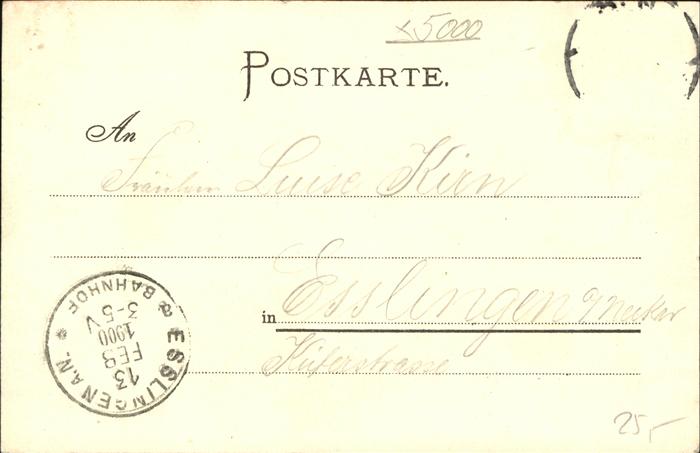 x5000
POSTKARTE.
An
Fräulein Luise Kirn
in Esslingen a/Neckar
Küferstrasse
ESSLINGEN A.N. * BAHNHOF
13 FEB 1900 3-5 V
25,-